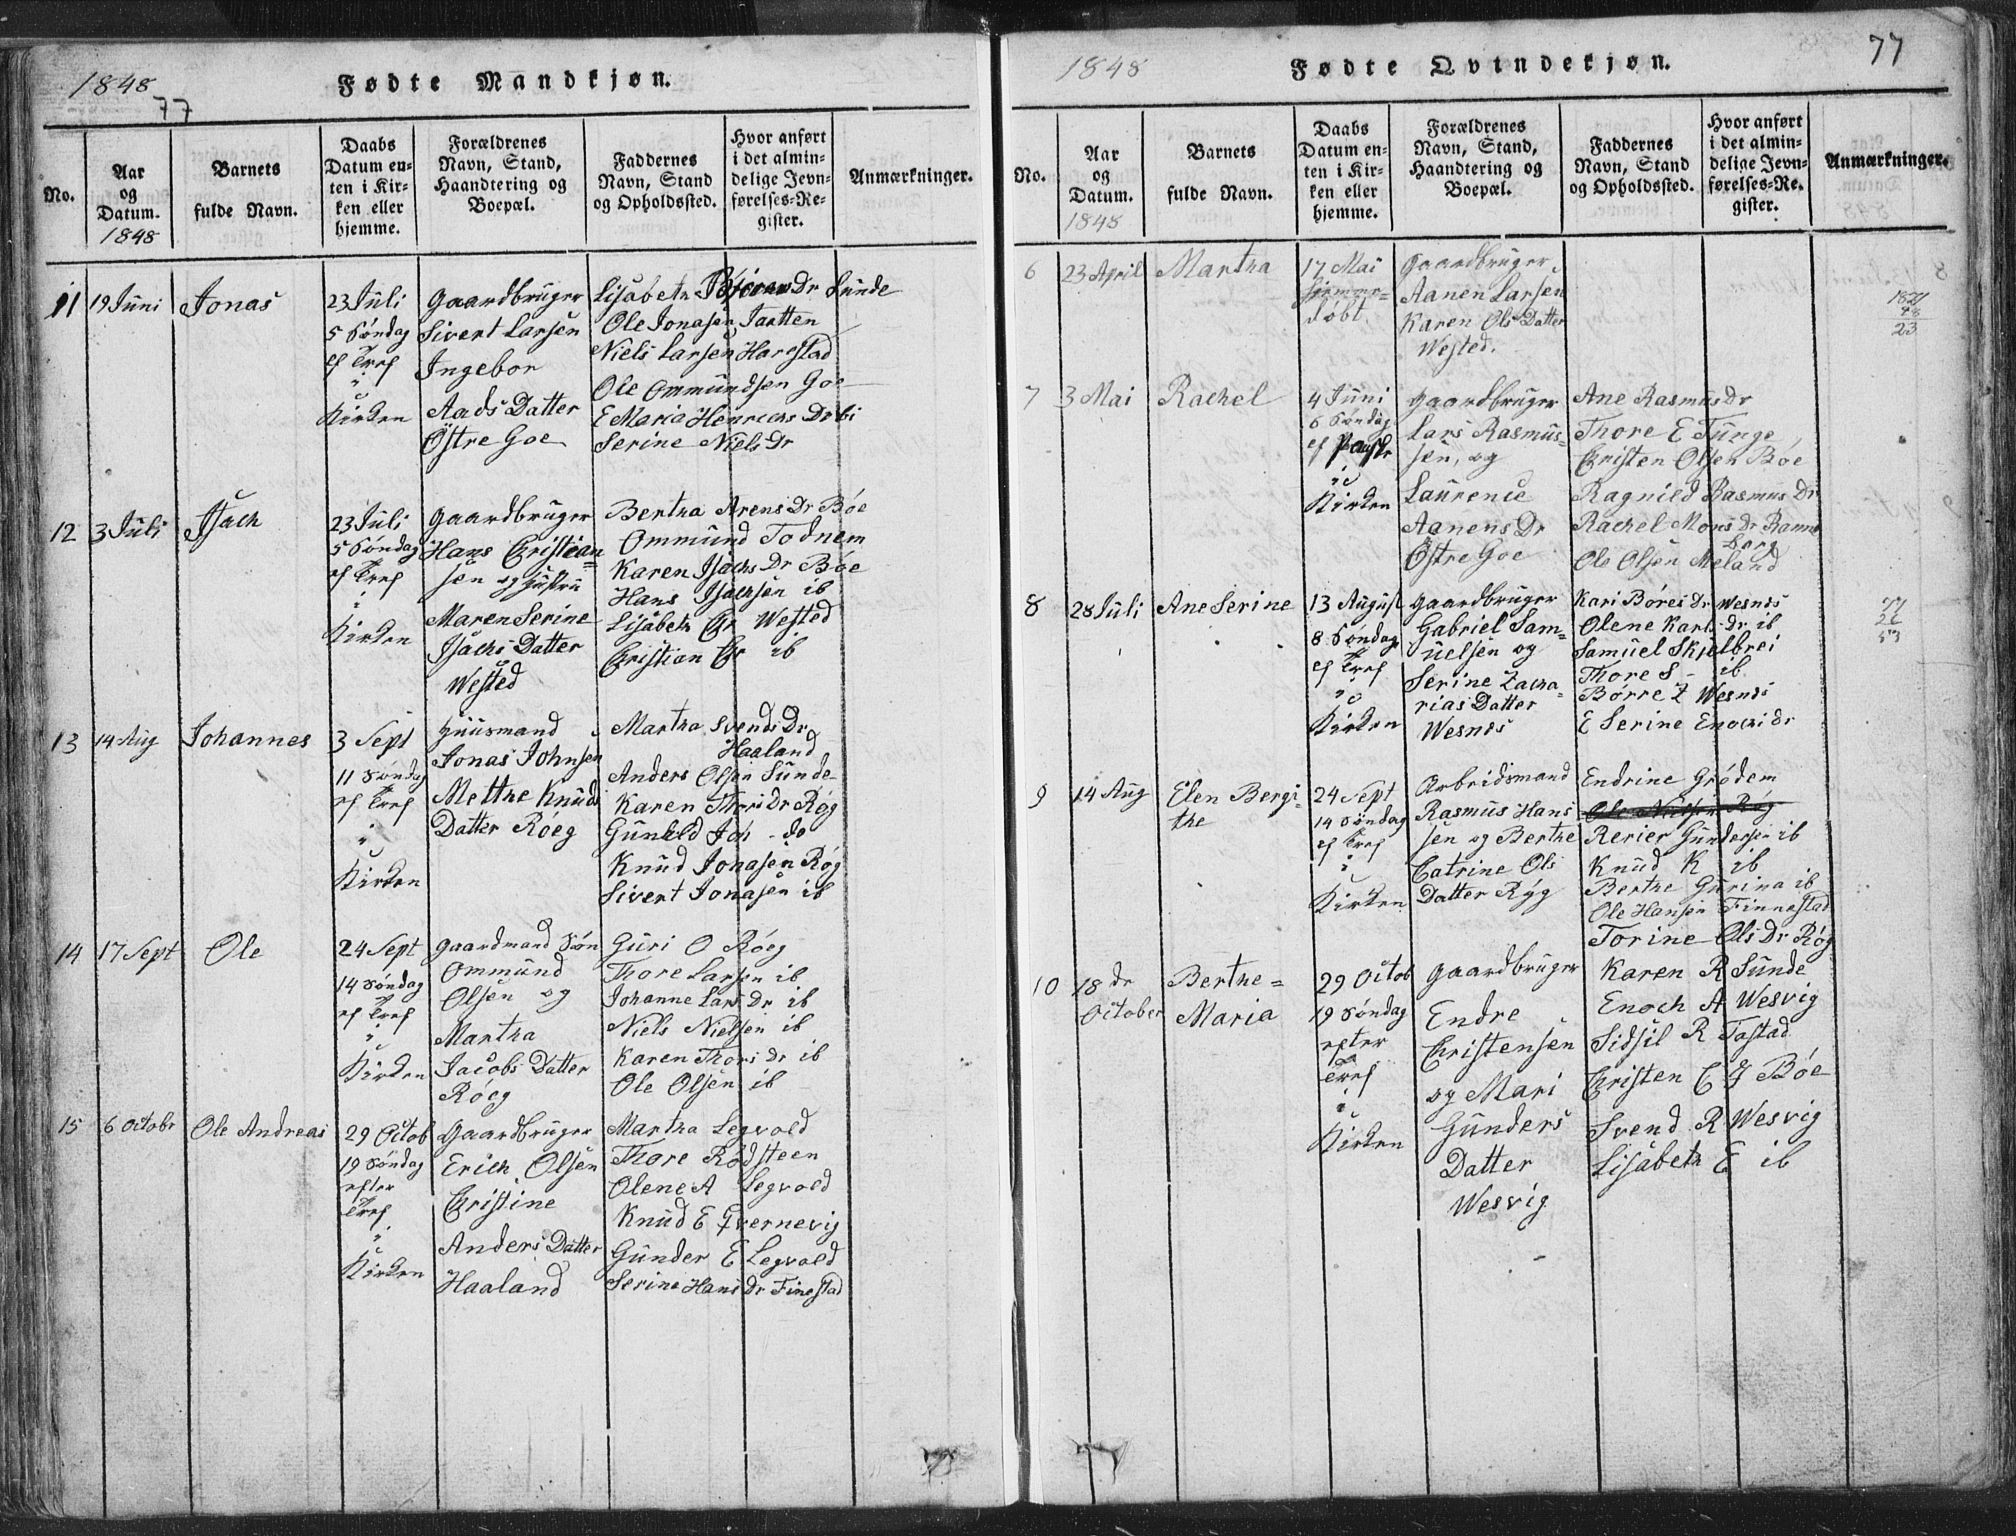 1848
77
Fødte Mandkjøn.
No.
Aar
og
Datum.
1848
Barnets
fulde Navn.
Daabs
Datum en-
ten i Kir-
ken eller
hjemme.
Forældrenes
Navn, Stand,
Haandtering og
Boepæl.
Faddernes
Navn, Stand
og Opholdssted.
Hvor anført
i det almin-
delige Jevn-
førelses-Re-
gister.
Anmærkninger.
11
19 Juni
Jonas
23 Juli
5 Søndag
ef Tref
i
Kirken
Gaardbruger
Sivert Larsen
Ingebor
Aads Datter
Östre Goe
Lisabeth Dr Sunde
Ole Jonasen Jartten
Niels Larsen Harestad
Ole Ommundsen Goe
E Maria Henrichs Dr bi
Serine Niels Dr
12
3 Juli
Isach
23 Juli
5 Søndag
ef Tref
i
Kirken
Gaardbruger
Hans Christian=
sen og Hustru
Maren Serine
Isachs Datter
Wested
Bertha Arens Dr Bóe
Ommund Todnem
Karen Isachs Dr Bóe
Hans Isachsen ib
Lisabeth Chr Wested
Christian Chr ib
13
14 Aug
Johannes
3 Sept
11 Søndag
ef Tref
i
Kirken
Huusmand
Jonas Johnsen
Metthe Knuds
Datter Róeg
Martha Svends Dr
Haaland
Anders Olsen Sunde
Karen Thors Dr Róg
Gunild Joh - do
Knud Jonasen Róg
Sivert Jonasen ib
14
17 Sept
Ole
24 Sept
14 Søndag
ef Tref
i
Kirken
Gaardmand Søn
Ommund
Olsen og
Martha
Jacobs Datter
Róeg
Guri O Róeg
Thore Larsen ib
Johanne Lars Dr ib
Niels Nielsen ib
Karen Thors dr ib
Ole Olsen ib
15
6 Octobr
Ole Andreas
29 Octob
19 Søndag
efter
Tref
i
Kirken
Gaardbruger
Erich Olsen
Christine
Anders Datter
Haaland
Martha Legvold
Thore Rødsteen
Olene A Legvold
Knud E Qvernevig
Gunder E Legvold
Serine Hans Dr Finestad
1848
Fødte Qvindekjøn.
77
No.
Aar
og
Datum.
1848
Barnets
fulde Navn.
Daabs
Datum en-
ten i Kir-
ken eller
hjemme.
Forældrenes
Navn, Stand,
Haandtering og
Boepæl.
Faddernes
Navn, Stand
og Opholdssted.
Hvor anført
i det almin-
delige Jevn-
førelses-Re.
gister.
Anmærkninger.
6
23 April
Martha
17 Mai
døbt
Gaardbruger
Aanen Larsen
Karen Ols Datter
Wested.
23
7
3 Mai
Rachel
4 Juni
6 Søndag
ef Paaske
i
Kirken
Gaardbruger
Lars Rasmus-
sen, og
Laurence
Aanens Dr
Östre Goe
Ane Rasmus Dr
Thore E Tunge
Christen Olsen Bóe
Ragnild Rasmus Dr
Rachel Mons Dr
Ole Olsen Meland
8
28 Juli
Ane Serine
13 August
8 Søndag
ef Tref
i
Kirken
Gaardbruger
Gabriel Sam=
uelsen og
Serine Zacha-
rias Datter
Wesnes
Kari Bóres Dr Wesnes
Olene Karls dr ib
Samuel Skjelbrei
Thore S - ib
Bórre Z Wesnes
E Serine Enochs dr
77
26
53
9
14 Aug
Elen Bergi-
the
24 Sept
14 Søndag
ef Tref
i
Kirken
Arbeidsmand
Rasmus Hans
sen og Berthe
Catrine Ols
Datter Róg
Endrine Gródem
Ole Nielsen Róg
Rerier Gundersen ib
Knud K ib
Berthe Gurina ib
Ole Hansen Finnestad
Torine Ols Dr Róg
10
18 de
October
Berthe=
Maria
29 Octob
19 Søndag
efter
Tref
i
Kirken
Gaardbruger
Endre
Christensen
og Mari
Gunders
Datter
Wesvig
Karen R Sunde
Enoch A Wesvig
Sidsil R Tastad
Christen C J Bóe
Svend R Wesvig
Lisabeth E ib